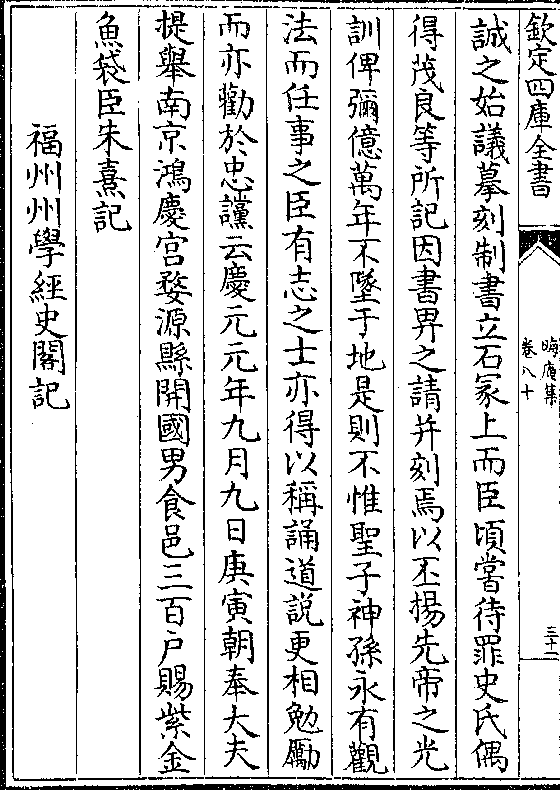 欽定四庫全書
晦庵集
卷八十
三十二
誠之始議摹刻制書立石冢上而臣頃嘗待罪史氏偶
得茂良等所記因書畀之請并刻焉以丕揚先帝之光
訓俾彌億萬年不墜于地是則不惟聖子神孫永有觀
法而任事之臣有志之士亦得以稱誦道説更相勉勵
而亦勸於忠讜云慶元元年九月九日庚寅朝奉大夫
提舉南京鴻慶宫婺源縣開國男食邑三百户賜紫金
魚袋臣朱熹記
福州州學經史閣記